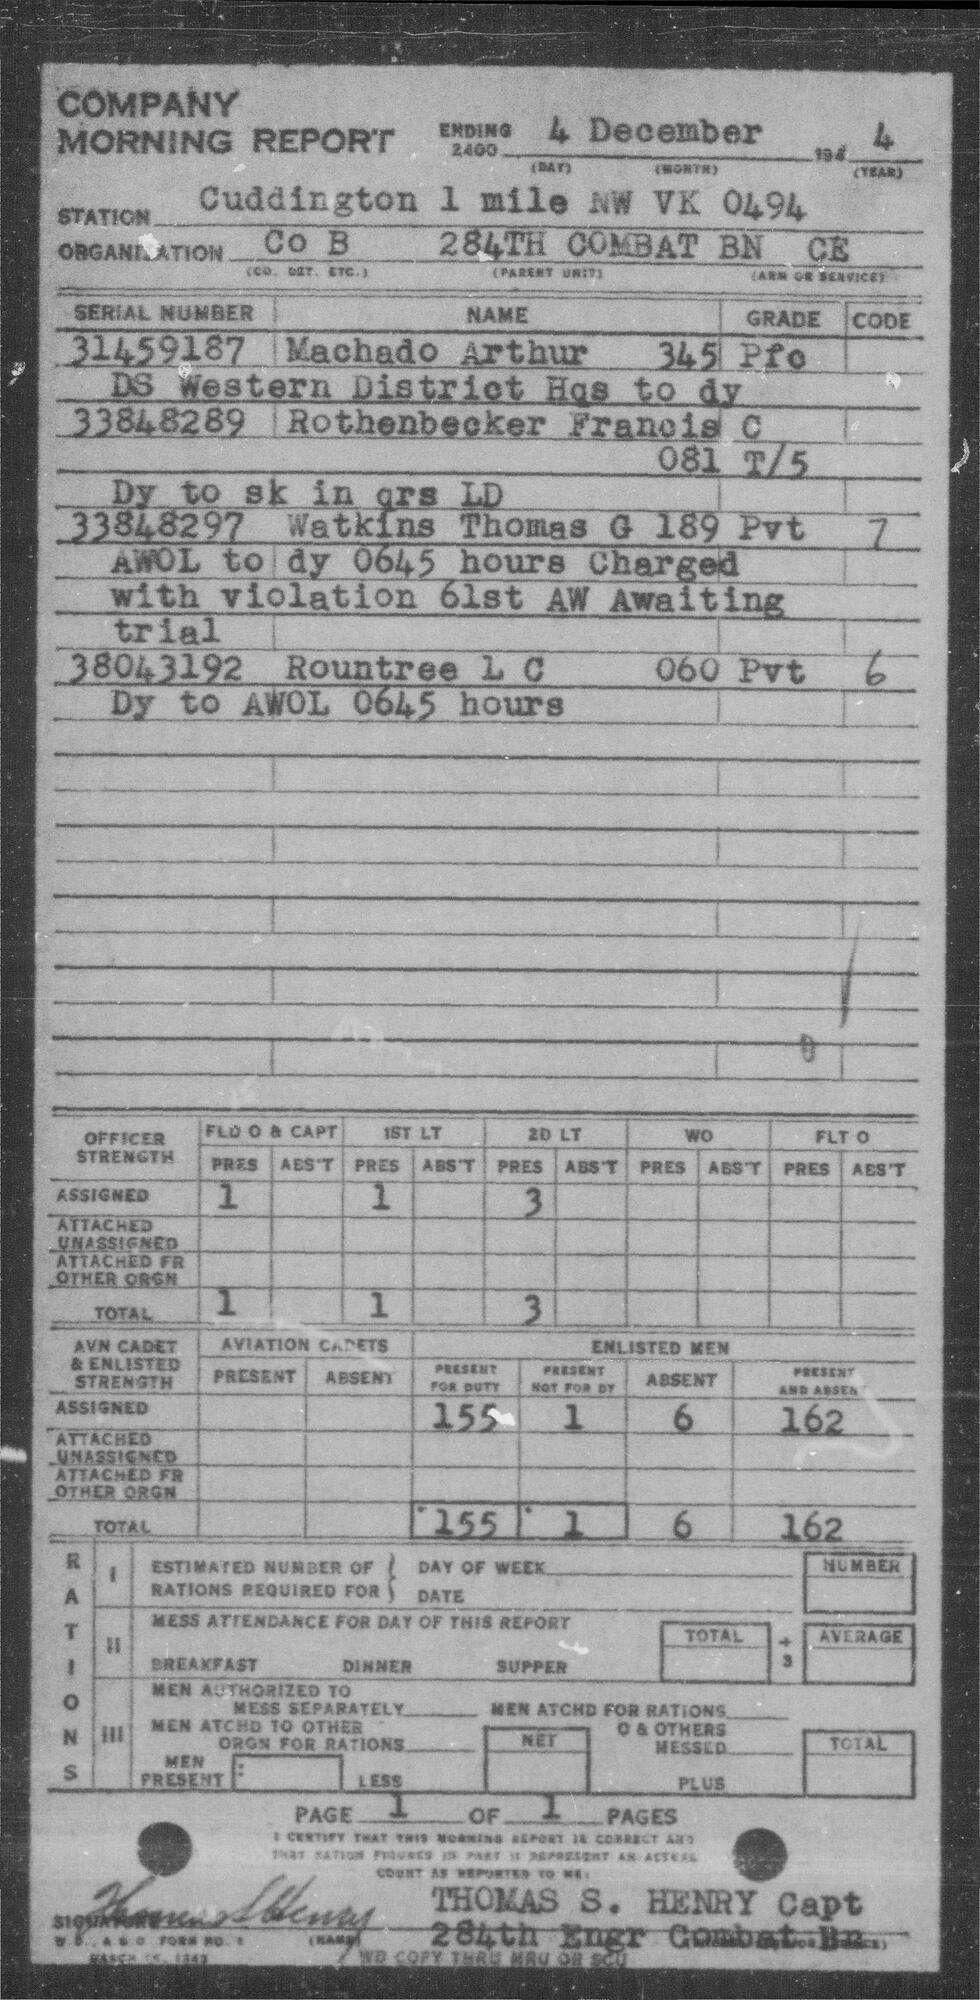 COMPANY
MORNING REPORT ENDING 2400 4 December 194 4
(DAY) (MONTH) (YEAR)
STATION Cuddington 1 mile NW VK 0494
ORGANIZATION Co B 284TH COMBAT BN CE
(CO. DET. ETC.) (PARENT UNIT) (ARM OR SERVICE)
SERIAL NUMBER NAME GRADE CODE
31459187 Machado Arthur 345 Pfc
DS Western District Hqs to dy
33848289 Rothenbecker Francis C
081 T/5
Dy to sk in qrs LD
33848297 Watkins Thomas G 189 Pvt 7
AWOL to dy 0645 hours Charged
with violation 61st AW Awaiting
trial
38043192 Rountree L C 060 Pvt 6
Dy to AWOL 0645 hours
OFFICER STRENGTH FLD O & CAPT 1ST LT 2D LT WO FLT O
PRES ABS'T PRES ABS'T PRES ABS'T PRES ABS'T PRES ABS'T
ASSIGNED 1 1 3
ATTACHED UNASSIGNED
ATTACHED FR OTHER ORGN
TOTAL 1 1 3
AVN CADET & ENLISTED STRENGTH AVIATION CADETS ENLISTED MEN
PRESENT ABSENT PRESENT FOR DUTY PRESENT NOT FOR DY ABSENT PRESENT AND ABSENT
ASSIGNED 155 1 6 162
ATTACHED UNASSIGNED
ATTACHED FR OTHER ORGN
TOTAL 155 1 6 162
RATIONS
I ESTIMATED NUMBER OF RATIONS REQUIRED FOR DAY OF WEEK NUMBER
DATE
II MESS ATTENDANCE FOR DAY OF THIS REPORT TOTAL ÷ 3 AVERAGE
BREAKFAST DINNER SUPPER
III MEN AUTHORIZED TO MESS SEPARATELY MEN ATCHD FOR RATIONS
MEN ATCHD TO OTHER ORGN FOR RATIONS NET O & OTHERS MESSED TOTAL
MEN PRESENT LESS PLUS
PAGE 1 OF 1 PAGES
I CERTIFY THAT THIS MORNING REPORT IS CORRECT AND
THAT RATION FIGURES IN PART II REPRESENT AN ACTUAL
COUNT AS REPORTED TO ME:
THOMAS S. HENRY Capt
SIGNATURE Thomas S Henry 284th Engr Combat Bn
W. D., A G O FORM NO. 1 (NAME)
MARCH 15, 1943 WD COPY THRU MRU OR SCU